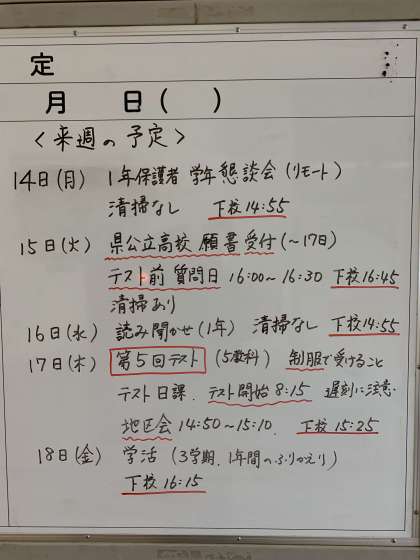 定
月 日( )
<来週の予定>
14日(月) 1年保護者 学年懇談会(リモート)
清掃なし 下校14:55
15日(火) 県公立高校 願書受付(~17日)
テスト前 質問日 16:00~16:30 下校16:45
清掃あり
16日(水) 読み聞かせ(1年) 清掃なし 下校14:55
17日(木) 第5回テスト (5教科) 制服で受けること
テスト日課. テスト開始 8:15 遅刻に注意.
地区会 14:50~15:10. 下校 15:25
18日(金) 学活 (3学期.1年間のふりかえり)
下校 16:15